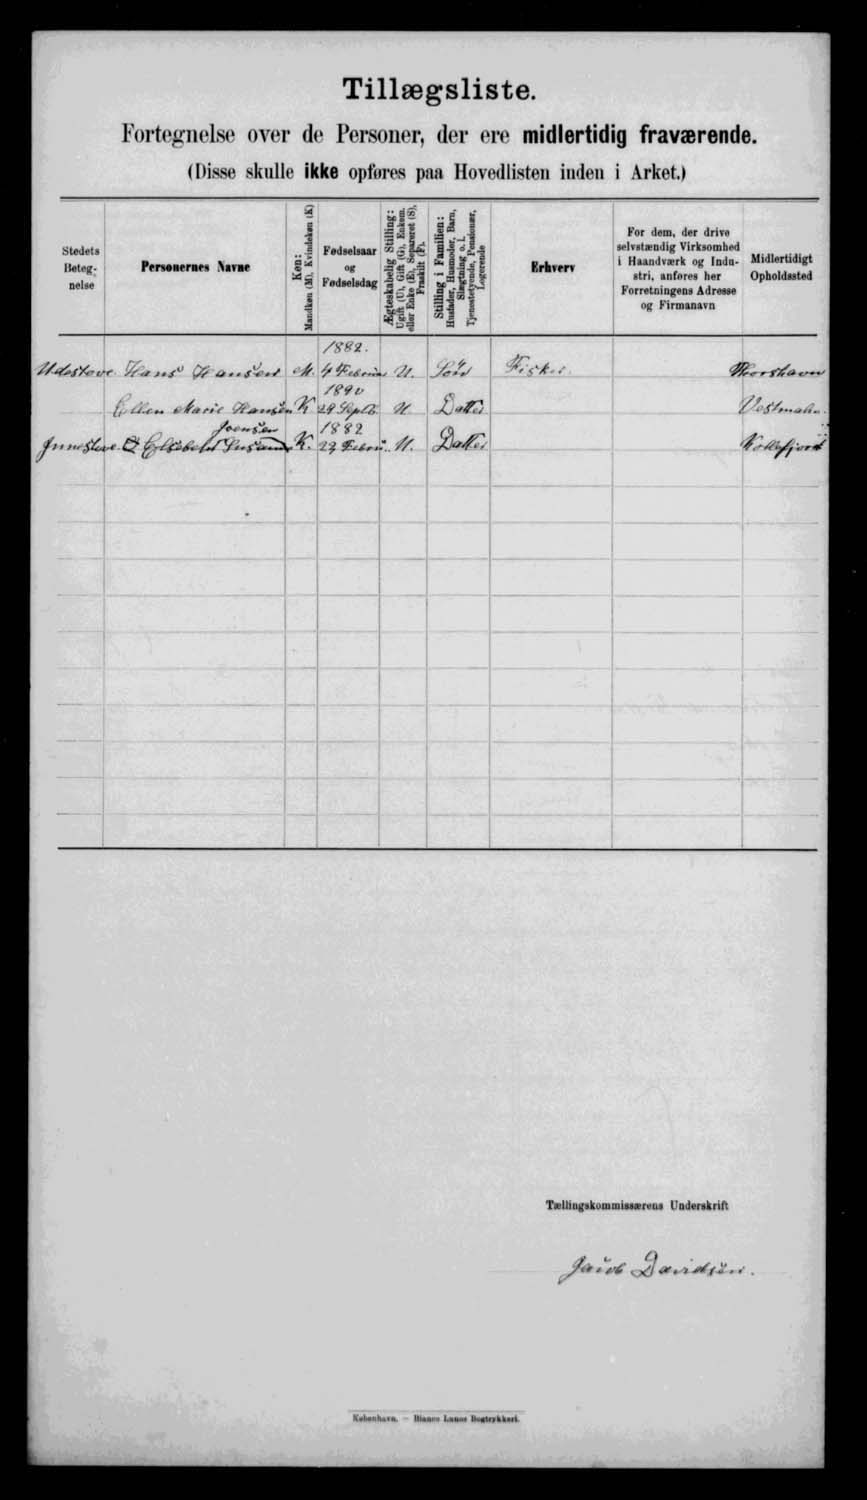 Tillægsliste.
Fortegnelse over de Personer, der ere midlertidig fraværende.
(Disse skulle ikke opføres paa Hovedlisten inden i Arket.)
Stedets Beteg-nelse
Personernes Navne
Køn: Mandkøn (M), Kvindekøn (K)
Fødselsaar og Fødselsdag
Ægteskabelig Stilling: Ugift (U), Gift (G), Enkem. eller Enke (E), Separeret (S), Fraskilt (F).
Stilling i Familien: Husfader, Husmoder, Barn, Slægtning o. l. Tjenestetyende, Pensionær, Logerende
Erhverv
For dem, der drive selvstændig Virksomhed i Haandværk og Indu-stri, anføres her Forretningens Adresse og Firmanavn
Midlertidigt Opholdssted
1882.
Udestove Hans Hansen M. 4 Februar U. Søn Fisker. Thorshavn
1890
Ellen Marie Hansen K 29 Septb. U Datter Vestmahn.
Joensen 1882
Innestove Elsebeth Susanne K. 23 Febru. U. Datter Kollefjord
Tællingskommissærens Underskrift
Jacob Davidsen.
København. — Bianco Lunos Bogtrykkeri.